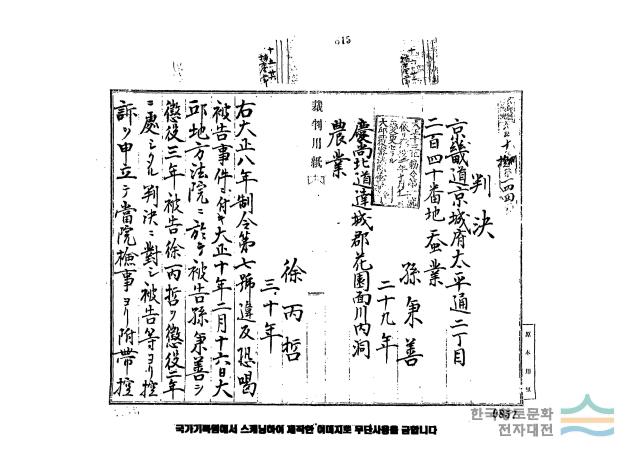 015
判決
京畿道京城府太平通二丁目
二百四十番地 蚕業
孫秉善
二十九年
慶尚北道達城郡花園面川内洞
農業
徐丙哲
三十年
右大正八年制令第七號違反恐喝
被告事件ニ付キ大正十年二月十六日大
邱地方法院ニ於テ被告孫秉善ヲ
懲役三年被告徐丙哲ヲ懲役二年
ニ處シタル判決ニ對シ被告等ヨリ控
訴ノ申立テ當院検事ヨリ附帯控
裁判用紙
原本用里
0852
한국향토문화
전자대전
국가기록원에서 스캐닝하여 제작한 이미지로 무단사용을 금합니다